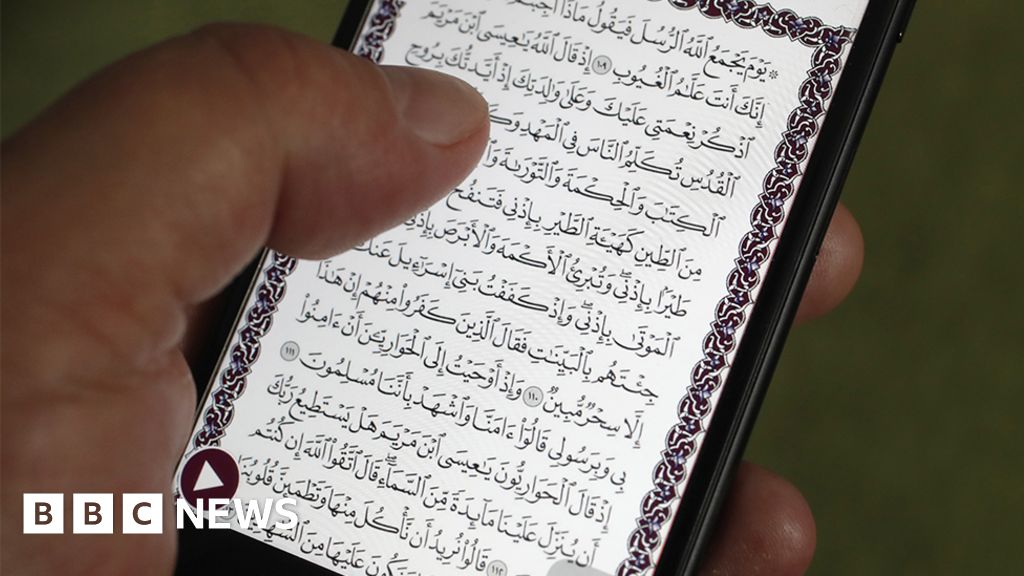 ۞ يَوْمَ يَجْمَعُ ٱللَّهُ ٱلرُّسُلَ فَيَقُولُ مَاذَآ أُجِبْتُمْ
إِنَّكَ أَنتَ عَلَّٰمُ ٱلْغُيُوبِ ١٠٩ إِذْ قَالَ ٱللَّهُ يَٰعِيسَى ٱبْنَ مَرْيَمَ
ٱذْكُرْ نِعْمَتِى عَلَيْكَ وَعَلَىٰ وَٰلِدَتِكَ إِذْ أَيَّدتُّكَ بِرُوحِ
ٱلْقُدُسِ تُكَلِّمُ ٱلنَّاسَ فِى ٱلْمَهْدِ
ٱلْكِتَٰبَ وَٱلْحِكْمَةَ وَٱلتَّوْرَىٰةَ
مِنَ ٱلطِّينِ كَهَيْـَٔةِ ٱلطَّيْرِ بِإِذْنِى فَتَنفُخُ
طَيْرًۢا بِإِذْنِى وَتُبْرِئُ ٱلْأَكْمَهَ وَٱلْأَبْرَصَ بِإِذْنِى
ٱلْمَوْتَىٰ بِإِذْنِى وَإِذْ كَفَفْتُ بَنِىٓ إِسْرَٰٓءِيلَ عَنكَ
جِئْتَهُم بِٱلْبَيِّنَٰتِ فَقَالَ ٱلَّذِينَ كَفَرُوا۟ مِنْهُمْ إِنْ هَٰذَآ
إِلَّا سِحْرٌ مُّبِينٌ ١١٠ وَإِذْ أَوْحَيْتُ إِلَى ٱلْحَوَارِيِّۦنَ أَنْ ءَامِنُوا۟
بِى وَبِرَسُولِى قَالُوٓا۟ ءَامَنَّا وَٱشْهَدْ بِأَنَّنَا مُسْلِمُونَ ١١١
إِذْ قَالَ ٱلْحَوَارِيُّونَ يَٰعِيسَى ٱبْنَ مَرْيَمَ هَلْ يَسْتَطِيعُ رَبُّكَ
أَن يُنَزِّلَ عَلَيْنَا مَآئِدَةً مِّنَ ٱلسَّمَآءِ قَالَ ٱتَّقُوا۟ ٱللَّهَ إِن كُنتُم
١١٢ قَالُوا۟ نُرِيدُ أَن نَّأْكُلَ مِنْهَا وَتَطْمَئِنَّ قُلُوبُنَا
وَنَكُونَ عَلَيْهَا مِنَ
BBC NEWS